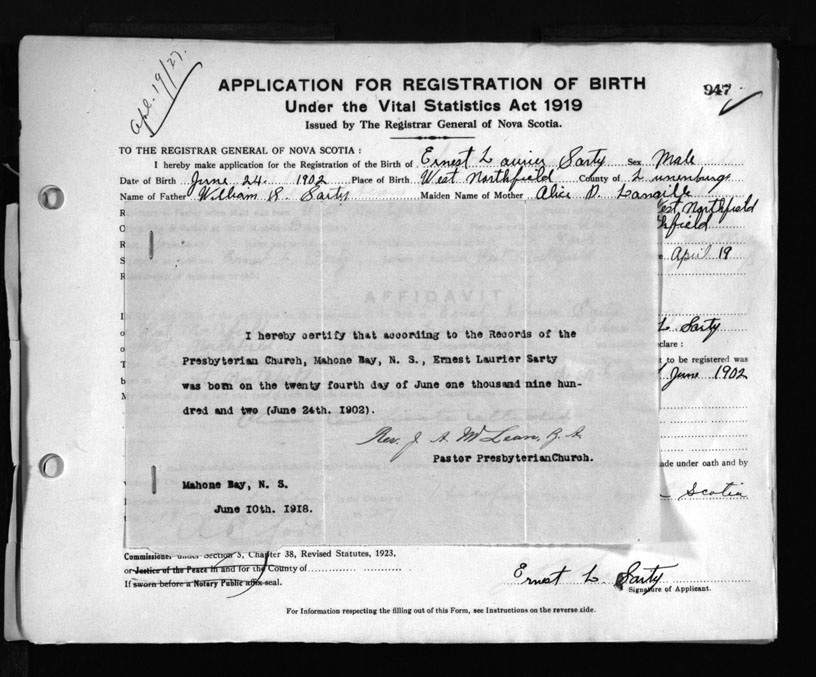 Apl. 19/27.
947
APPLICATION FOR REGISTRATION OF BIRTH
Under the Vital Statistics Act 1919
Issued by The Registrar General of Nova Scotia.
TO THE REGISTRAR GENERAL OF NOVA SCOTIA :
I hereby make application for the Registration of the Birth of Ernest Laurier Sarty Sex Male
Date of Birth June 24. 1902 Place of Birth West Northfield County of Lunenburg
Name of Father William S. Sarty Maiden Name of Mother Alice D. Langille
West Northfield
hfield
April 19
AFFIDAVIT
L Sarty
clare :
to be registered was
June 1902
I hereby certify that according to the Records of the
Presbyterian Church, Mahone Bay, N. S., Ernest Laurier Sarty
was born on the twenty fourth day of June one thousand nine hun-
dred and two (June 24th. 1902).
Rev. J. A. McLean, B.A.
Pastor PresbyterianChurch.
Mahone Bay, N. S.
June 10th. 1918.
ade under oath and by
Scotia
Commissioner under Section 5, Chapter 38, Revised Statutes, 1923.
or Justice of the Peace in and for the County of
If sworn before a Notary Public affix seal.
Ernest L. Sarty
Signature of Applicant.
For Information respecting the filling out of this Form, see Instructions on the reverse side.